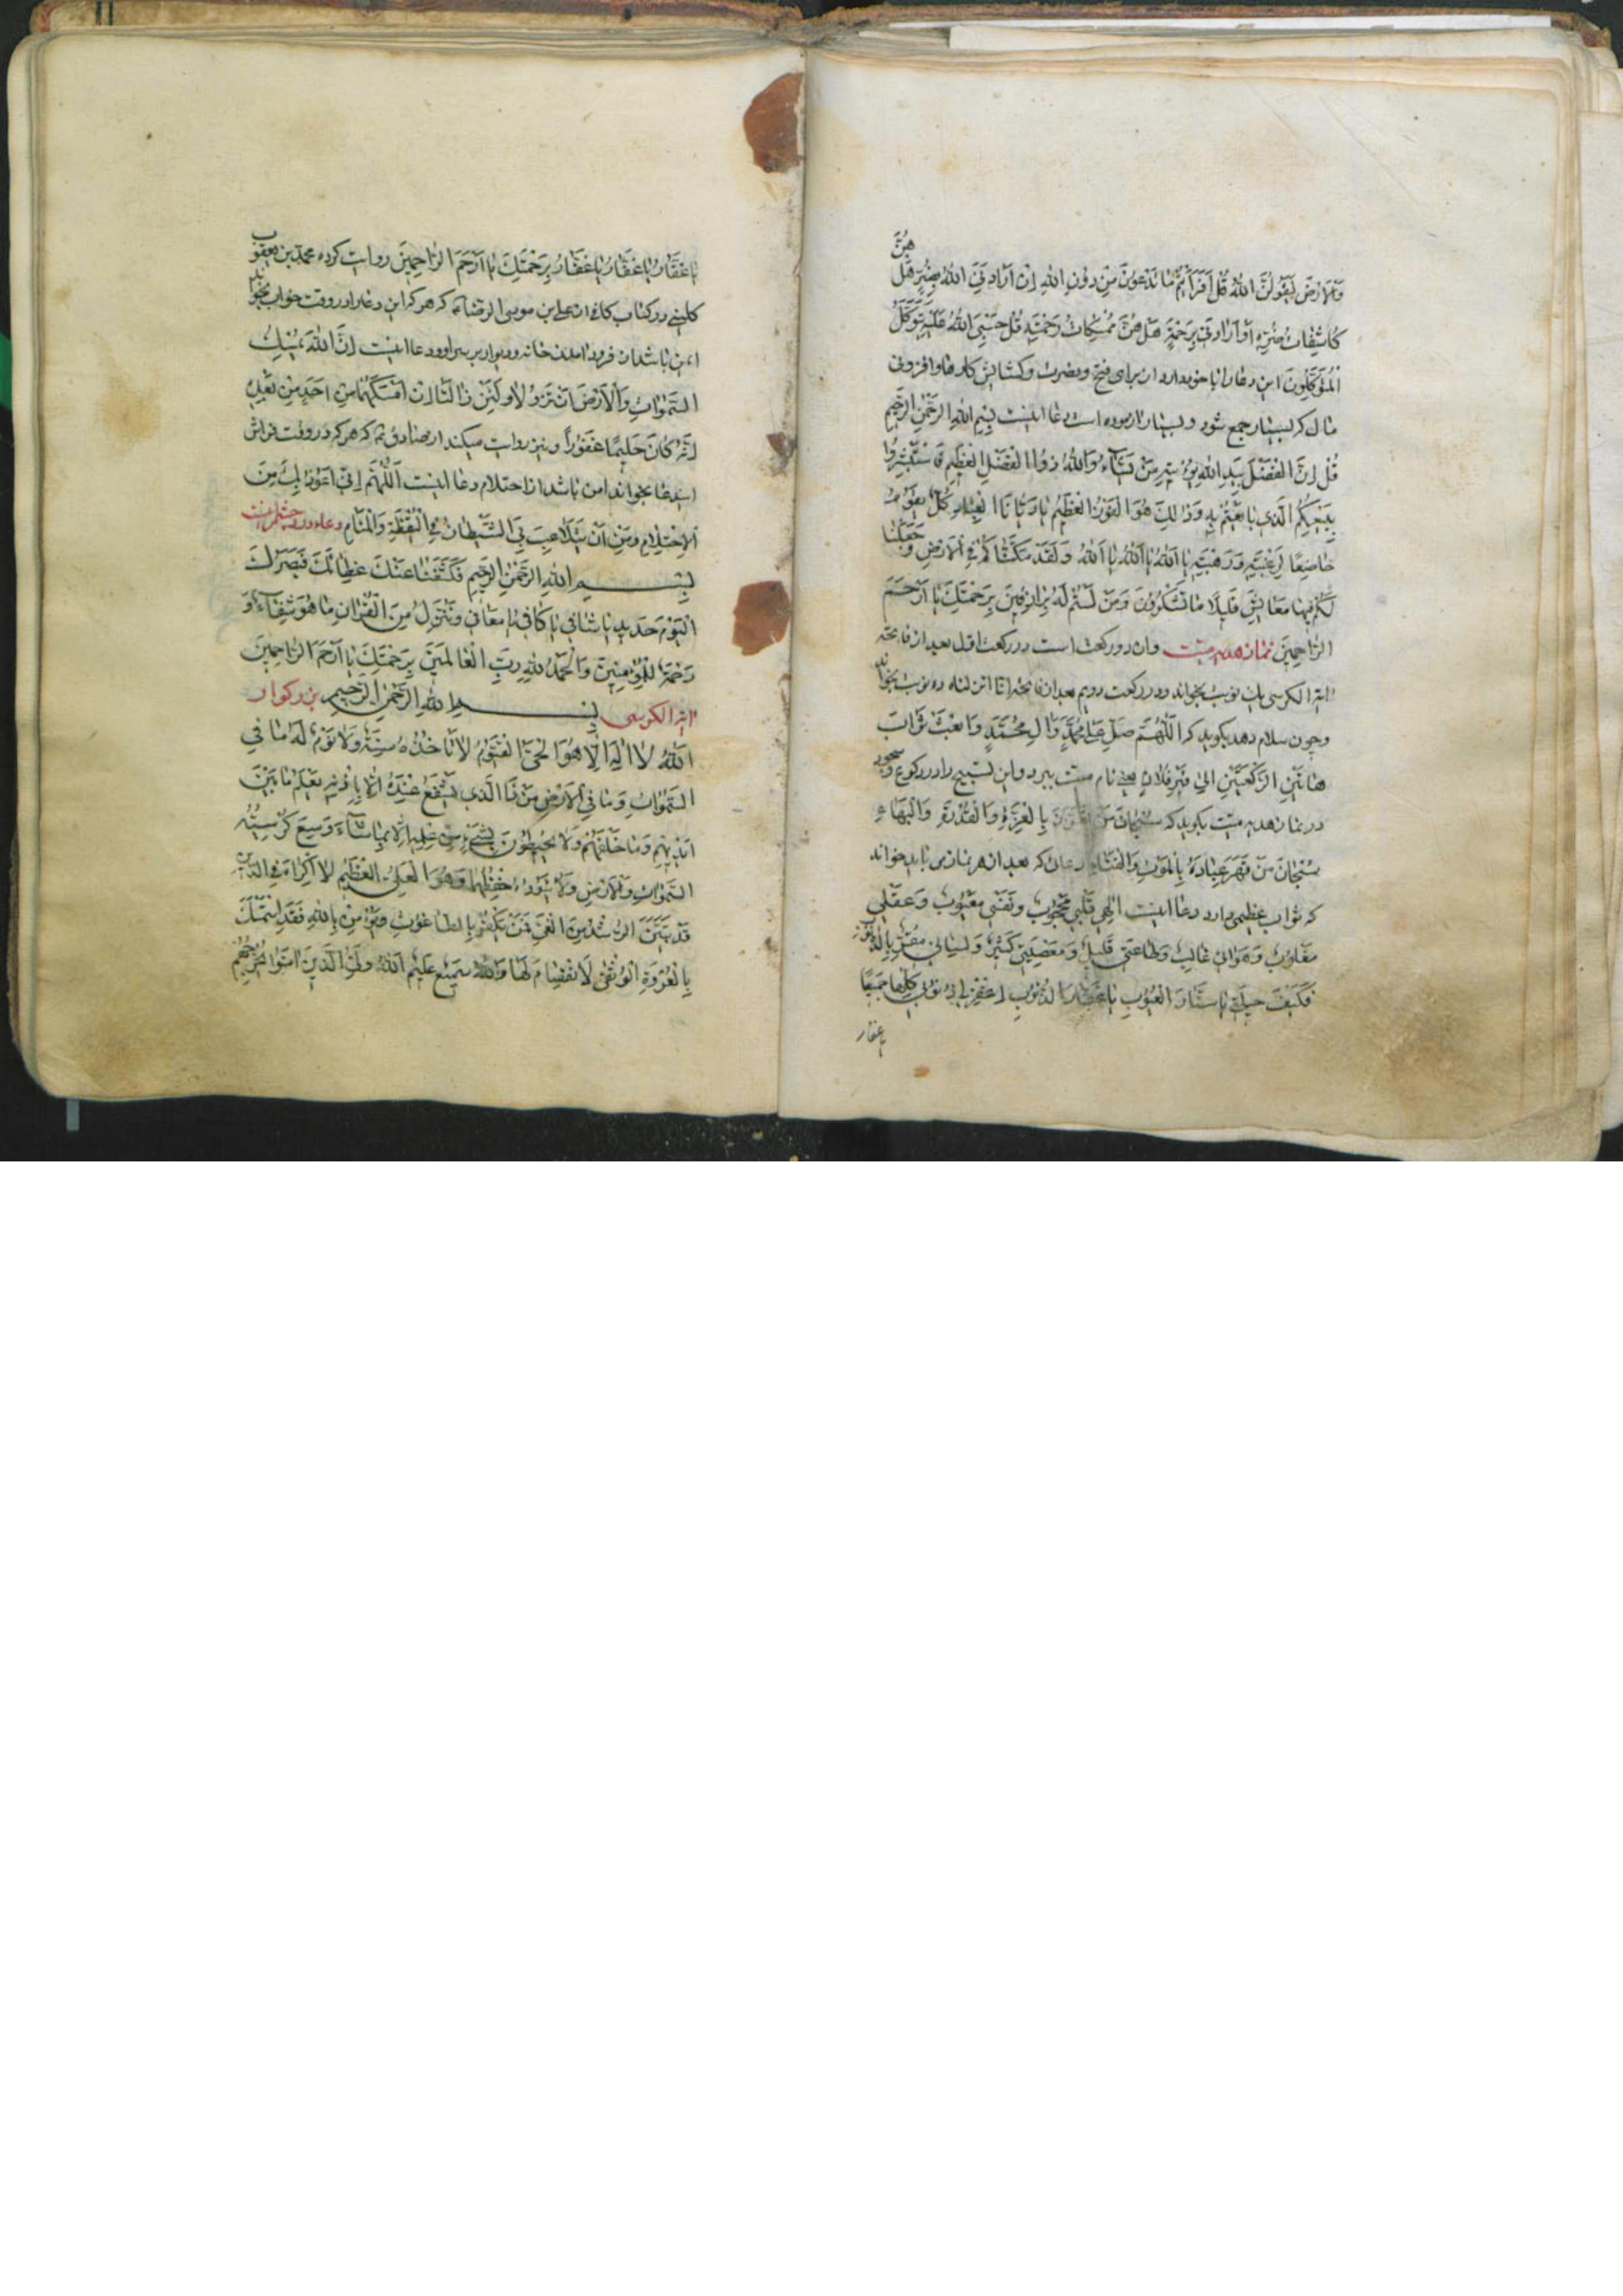 وَالْاَرْضَ لَيَقُولُنَّ اللهُ قُلْ اَفَرَاَيْتُمْ مَا تَدْعُونَ مِنْ دُونِ اللهِ اِنْ اَرَادَنِيَ اللهُ بِضُرٍّ هَلْ هُنَّ
كَاشِفَاتُ ضُرِّهِ اَوْ اَرَادَنِي بِرَحْمَةٍ هَلْ هُنَّ مُمْسِكَاتُ رَحْمَتِهِ قُلْ حَسْبِيَ اللهُ عَلَيْهِ يَتَوَكَّلُ
الْمُتَوَكِّلُونَ این دعا را با خود دارد از برای فتح و نصرت و کشایش کارها و افزونی
مال که بسیار جمع شود و بسیار ازموده است دعا اینست بِسْمِ اللهِ الرَّحْمٰنِ الرَّحِيمِ
قُلْ اِنَّ الْفَضْلَ بِيَدِ اللهِ يُؤْتِيهِ مَنْ يَشَآءُ وَاللهُ ذُو الْفَضْلِ الْعَظِيمِ فَاسْتَبْشِرُوا
بِبَيْعِكُمُ الَّذِي بَايَعْتُمْ بِهِ وَذَالِكَ هُوَ الْفَوْزُ الْعَظِيمُ يَا رَبَّنَا يَا كُلٌّ يَقُومُ
خَاضِعًا لِرَغْبَتِهِ وَرَهْبَتِهِ يَا اَللهُ يَا اَللهُ يَا اَللهُ وَلَقَدْ مَكَّنَّاكُمْ فِي الْاَرْضِ وَجَعَلْنَا
لَكُمْ فِيهَا مَعَايِشَ قَلِيلًا مَا تَشْكُرُونَ وَمَنْ لَسْتُمْ لَهُ بِرَازِقِينَ بِرَحْمَتِكَ يَا اَرْحَمَ
الرَّاحِمِينَ نماز هدیه میت وان دو رکعت است در رکعت اول بعد از فاتحه
ایة الکرسی یک نوبت بخواند ودر رکعت دویم بعد از فاتحه انا انزلناه ده نوبت بخواند
وچون سلام دهد بکوید که اَللّٰهُمَّ صَلِّ عَلٰى مُحَمَّدٍ وَاٰلِ مُحَمَّدٍ وَابْعَثْ ثَوَابَ
هَاتَيْنِ الرَّكْعَتَيْنِ اِلٰى قَبْرِ فُلَانٍ یعنی نام میت ببرد واین تسبیح را در رکوع وسجود
در نماز هدیه میت بکوید که سُبْحَانَ مَنْ بِالْعِزَّةِ وَالْقُدْرَةِ وَالْبَهَاءِ
سُبْحَانَ مَنْ قَهَرَ عِبَادَهُ بِالْمَوْتِ وَالْفَنَاءِ دعائی که بعد از هر نمازی باید خواند
که ثواب عظیمی دارد دعا اینست اِلٰهِي قَلْبِي مَحْجُوبٌ وَنَفْسِي مَعْيُوبٌ وَعَقْلِي
مَغْلُوبٌ وَهَوَائِي غَالِبٌ وَطَاعَتِي قَلِيلٌ وَمَعْصِيَتِي كَثِيرٌ وَلِسَانِي مُقِرٌّ بِالذُّنُوبِ
فَكَيْفَ حِيلَتِي يَا سَتَّارَ الْعُيُوبِ يَا غَفَّارَ الذُّنُوبِ اِغْفِرْ لِي ذُنُوبِي كُلَّهَا جَمِيعًا
یا غفار
يَا غَفَّارُ يَا غَفَّارُ يَا غَفَّارُ بِرَحْمَتِكَ يَا اَرْحَمَ الرَّاحِمِينَ روایت کرده محمد بن یعقوب
کلینی در کتاب کافی از علی ابن موسی الرضا که هرکه این دعا را در وقت خواب بخواند
ایمن باشد از فرود امدن خانه ودیوار بر سر او ودعا اینست اِنَّ اللهَ يُمْسِكُ
السَّمٰوَاتِ وَالْاَرْضَ اَنْ تَزُولَا وَلَئِنْ زَالَتَا اِنْ اَمْسَكَهُمَا مِنْ اَحَدٍ مِنْ بَعْدِهِ
اِنَّهُ كَانَ حَلِيمًا غَفُورًا ونیز روایت میکند از صادق که هرکه در وقت فراش
این دعا بخواند امن باشد از احتلام دعا اینست اَللّٰهُمَّ اِنِّي اَعُوذُ بِكَ مِنَ
الْاِحْتِلَامِ وَمِنْ اَنْ يَتَلَاعَبَ بِيَ الشَّيْطَانُ فِي الْيَقْظَةِ وَالْمَنَامِ دعاء درد چشم اینست
بِسْمِ اللهِ الرَّحْمٰنِ الرَّحِيمِ فَكَشَفْنَا عَنْكَ غِطَائَكَ فَبَصَرُكَ
الْيَوْمَ حَدِيدٌ يَا شَافِي يَا كَافِي يَا مُعَافِي وَنُنَزِّلُ مِنَ الْقُرْاٰنِ مَا هُوَ شِفَآءٌ وَ
رَحْمَةٌ لِلْمُؤْمِنِينَ وَالْحَمْدُ لِلّٰهِ رَبِّ الْعَالَمِينَ بِرَحْمَتِكَ يَا اَرْحَمَ الرَّاحِمِينَ
ایة الکرسی بِسْمِ اللهِ الرَّحْمٰنِ الرَّحِيمِ بزرکوار
اَللهُ لَا اِلٰهَ اِلَّا هُوَ الْحَيُّ الْقَيُّومُ لَا تَاْخُذُهُ سِنَةٌ وَلَا نَوْمٌ لَهُ مَا فِي
السَّمٰوَاتِ وَمَا فِي الْاَرْضِ مَنْ ذَا الَّذِي يَشْفَعُ عِنْدَهُ اِلَّا بِاِذْنِهِ يَعْلَمُ مَا بَيْنَ
اَيْدِيهِمْ وَمَا خَلْفَهُمْ وَلَا يُحِيطُونَ بِشَيْءٍ مِنْ عِلْمِهِ اِلَّا بِمَا شَآءَ وَسِعَ كُرْسِيُّهُ
السَّمٰوَاتِ وَالْاَرْضَ وَلَا يَؤُدُهُ حِفْظُهُمَا وَهُوَ الْعَلِيُّ الْعَظِيمُ لَا اِكْرَاهَ فِي الدِّينِ
قَدْ تَبَيَّنَ الرُّشْدُ مِنَ الْغَيِّ فَمَنْ يَكْفُرْ بِالطَّاغُوتِ وَيُؤْمِنْ بِاللهِ فَقَدِ اسْتَمْسَكَ
بِالْعُرْوَةِ الْوُثْقٰى لَا انْفِصَامَ لَهَا وَاللهُ سَمِيعٌ عَلِيمٌ اَللهُ وَلِيُّ الَّذِينَ اٰمَنُوا يُخْرِجُهُمْ